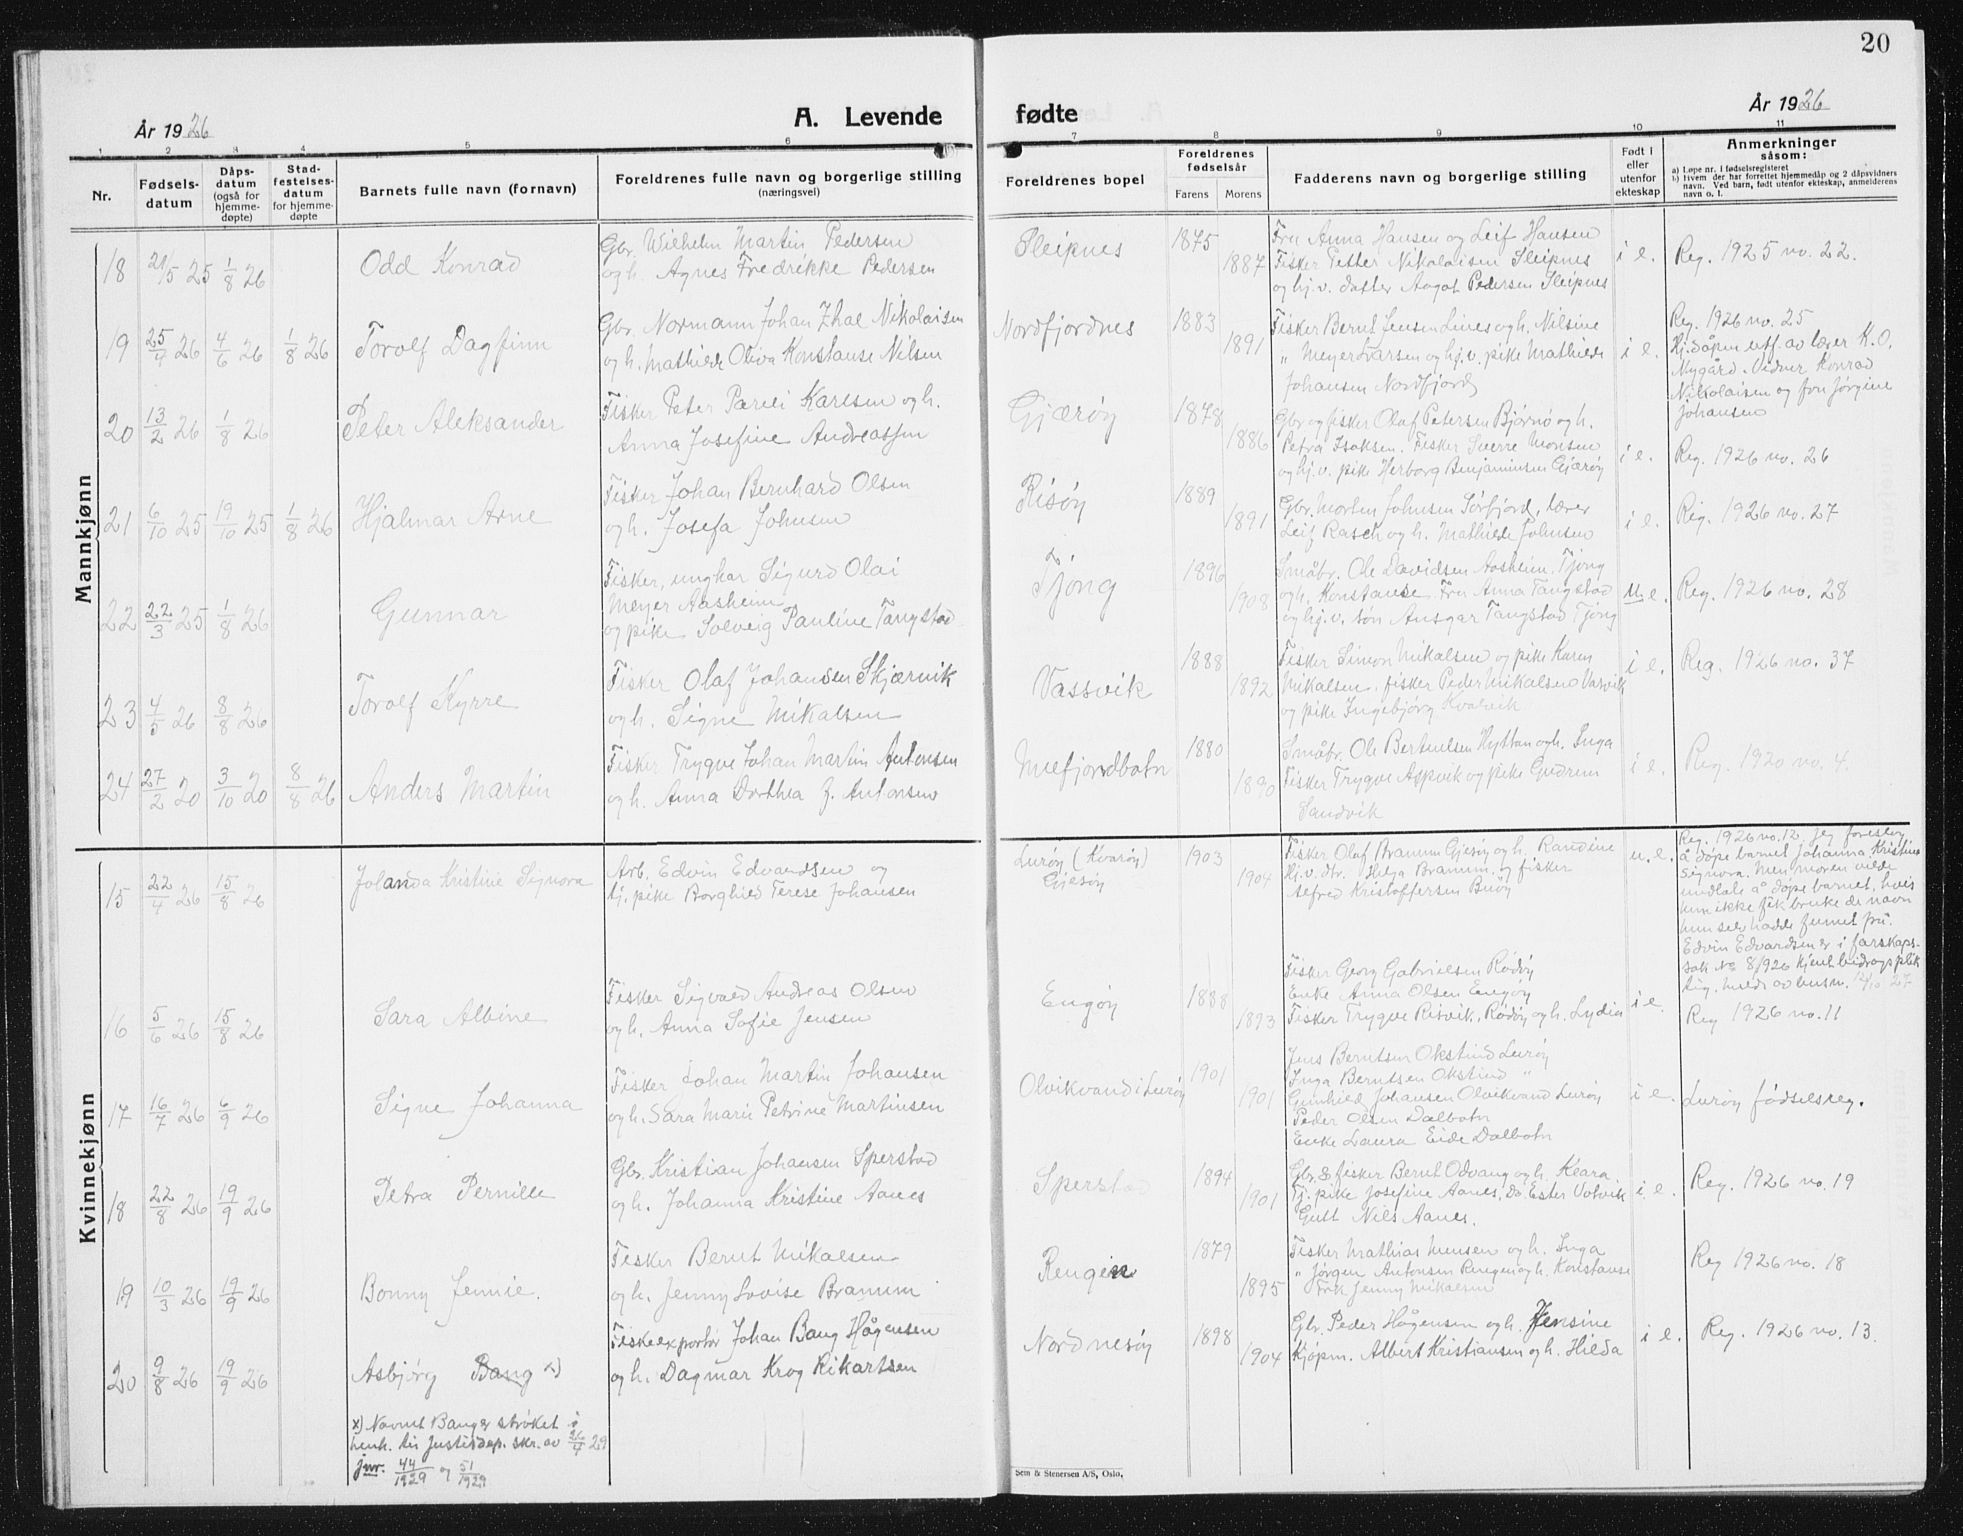 20
År 1926
A. Levende fødte
År 1926
1 2 3 4 5 6 7 8 9 10 11
Nr.
Fødsels-
datum
Dåps-
datum
(også for
hjemme-
døpte)
Stad-
festelses-
datum
for hjemme-
døpte
Barnets fulle navn (fornavn)
Foreldrenes fulle navn og borgerlige stilling
(næringsvei)
Foreldrenes bopel
Foreldrenes
fødselsår
Farens Morens
Fadderens navn og borgerlige stilling
Født i
eller
utenfor
ekteskap
Anmerkninger
såsom:
a) Løpe nr. i fødselsregisteret
b) Hvem der har forrettet hjemmedåp og 2 dåpsvidners
navn. Ved barn, født utenfor ekteskap, anmelderens
navn o. l.
Mannkjønn
18 21/5 25 1/8 26 Odd Konrad
Gbr. Wilhelm Martin Pedersen
og h. Agnes Fredrikke Pedersen
Sleipnes 1875 1887
Fru Anna Hansen og Leif Hansen
Fisker Petter Nikolaisen Sleipnes
og hj.v. datter Aagot Pedersen Sleipnes
i e. Reg. 1925 no. 22.
19 25/4 26 4/6 26 1/8 26 Torolf Dagfinn
Gbr. Normann Johan Nikolaisen
og h. Mathilde Oliva Konstanse Nilsen
Nordfjordnes 1883 1891
Fisker Bernt Jensen Lines og h. Nilsine
" Meyer Larsen og hj.v. pike Mathilde
Johansen Nordfjord
i e. Reg. 1926 no. 25
Hj.døpen utf. av lærer K.O.
Nygård. Vidner Konrad
Nikolaisen og fru Jørgine
Johansen
20 13/2 26 1/8 26 Peter Aleksander
Fisker Peter Pareli Karlsen og h.
Anna Josefine Andreassen
Gjærøy 1878 1886
Gbr og fisker Olaf Petersen Bjørnø og h.
Petra Isaksen. Fisker Sverre Monsen
og hj.v. pike Herborg Benjaminsen Gjærøy
i e. Reg. 1926 no. 26
21 6/10 25 19/10 25 1/8 26 Hjalmar Arne
Fisker Johan Bernhard Olsen
og h. Josefa Johnsen
Risøy 1889 1891
Gbr. Morten Johnsen Sørfjord, lærer
Leif Rasch og h. Mathilde Johnsen
i e. Reg. 1926 no. 27
22 22/3 25 1/8 26 Gunnar
Fisker, ungkar Sigurd Olai
Meyer Aasheim
og pike Solveig Pauline Tangstad
Tjong 1896 1908
Småbr. Ole Davidsen Aasheim, Tjong
og h. Konstanse. Fru Anna Tangstad
og hj.v. søn Ansgar Tangstad Tjong
u. e. Reg. 1926 no. 28
23 4/5 26 8/8 26 Torolf Kyrre
Fisker Olaf Johansen Skjærvik
og h. Signe Mikalsen
Vassvik 1888 1892
Fisker Simon Mikalsen og pike Karen
Mikalsen. fisker Peder Mikalsen Vasvik
og pike Ingebjørg Kvalvik
i e. Reg. 1926 no. 37
24 27/2 20 3/10 20 8/8 26 Anders Martin
Fisker Trygve Johan Martin Antonsen
og h. Anna Dorthea J. Antonsen
Melfjordbotn 1880 1890
Småbr. Ole Bertielsen Hyttan og h. Inga
Fisker Trygve Aspvik og pike Gudrun
Sandvik
i e. Reg. 1920 no. 4.
Kvinnekjønn
15 22/4 26 15/8 26 Jolanda Kristine Signora
Arb. Edvin Edvardsen og
tj. pike Borghild Terese Johansen
Lurøy (Kvarøy)
Gjesøy 1903 1904
Fisker Olaf Bramm Gjesøy og h. Randine
Hj.v. dtr. Helga Bramm. og fisker
Alfred Kristoffersen Buøy
u. e. Reg. 1926 no. 12 Jeg foreslog
å døpe barnet Johanna Kristine
Signora. Men moren vilde
undlate å døpe barnet, hvis
hun ikke fik bruke de navn
hun selv hadde funnet på.
Edvin Edvardsen er i farskaps-
sak No 8/926 kjent bidragsplik
tig,
16 5/6 26 15/8 26 Sara Albine
Fisker Sigvald Andreas Olsen
og h. Anna Sofie Jensen
Engøy 1888 1893
Fisker Georg Gabrielsen Rødøy
Enke Anna Olsen Engøy
Fisker Trygve Risvik, Rødøy og h. Lydia
i e. Reg 1926 no. 11
17 16/7 26 6/9 26 Signe Johanna
Fisker Johan Martin Johansen
og h. Sara Marie Petrine Martinsen
Olvikvand i Lurøy 1901 1901
Jens Berntsen Okstind Lurøy
Inga Berntsen Okstind "
Gunhild Johansen Olvikvand Lurøy
Peder Olsen Dalbotn
Enke Laura Eide Dalbotn
i e. Lurøy fødselsreg.
18 22/8 26 19/9 26 Petra Pernille
Gbr. Kristian Johansen Sperstad
og h. Johanna Kristine Aanes
Sperstad 1894 1901
Gbr & fisker Bernt Odvang og h. Klara
Tj. pike Josefine Aanes, Do. Ester Valvik
Gutt Nils Aanes.
i e. Reg. 1926 no. 19
19 10/3 26 19/9 26 Bonny Jennie.
Fisker Bernt Mikalsen
og h. Jenny Lovise Bramm
Rengen 1879 1895
Fisker Mathias Monsen og h. Inga
" Jørgen Antonsen Rengen og h. Konstanse
Frk Jenny Mikalsen
Reg 1926 no. 18
20 9/8 26 19/9 26 Asbjørg Bang x)
Fiskeexportør Johan Bang Hågensen
og h. Dagmar Krog Rikartsen
Nordnesøy 1898 1904
Gbr. Peder Hågensen og h. Jensine
Kjøpm. Albert Kristiansen og h. Hilda
i e. Reg. 1926 no. 13.
x) Navnet Bang er strøket i
henh. til Justisdep. skr. av 26/4 29
jnr. 44/1929 og 51/1929
Sem & Stenersen A/S, Oslo.